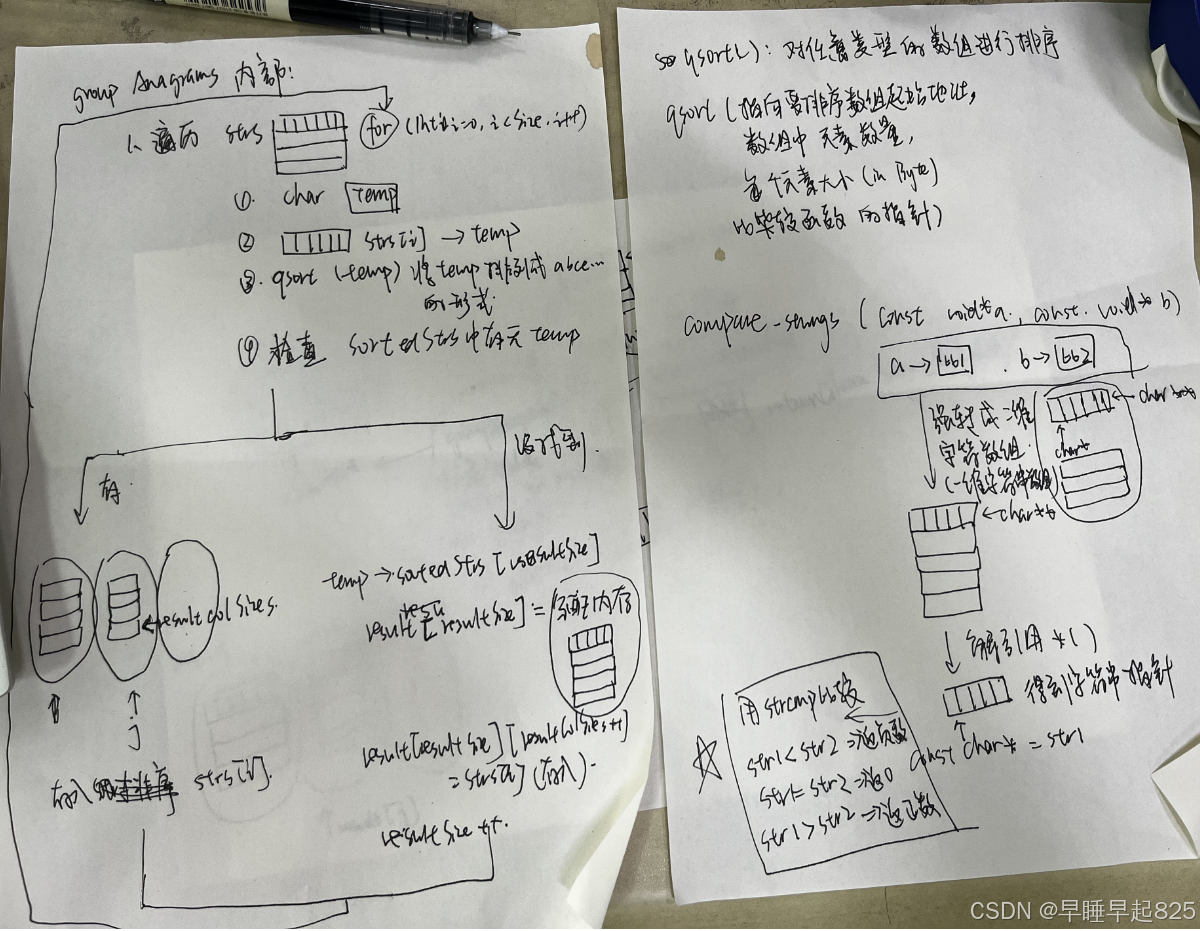 group Anagrams 内部:
1、遍历 strs for (int i=0, i<size, i++)
①. char temp
② strs[i] → temp
③. qsort (temp) 将temp排成abce...
的形式.
④ 检查 sortedStrs中有无temp
有.
没找到.
temp → sortedStrs [resultSize]
result [resultSize] = 分配内存
← result col sizes.
j
result[resultSize] [resultColSizes++]
= strs[i] (存入).
存入 strs[i].
result size ++.
qsort(): 对任意类型的数组进行排序
qsort (指向要排序数组起始地址,
数组中元素数量,
每个元素大小 (in Byte)
比较函数的指针)
compare-strings (const void* a, const void* b)
a → bb1 . b → bb2
强转成二维
字符数组.
(一维字符串数组)
← char**
char*
← char**
↓ 解引用 *( )
得到字符串指针
const char* = str1
☆
用strcmp比较
str1 < str2 ⇒ 返负数
str1 = str2 ⇒ 返0
str1 > str2 ⇒ 返正数
CSDN @早睡早起825